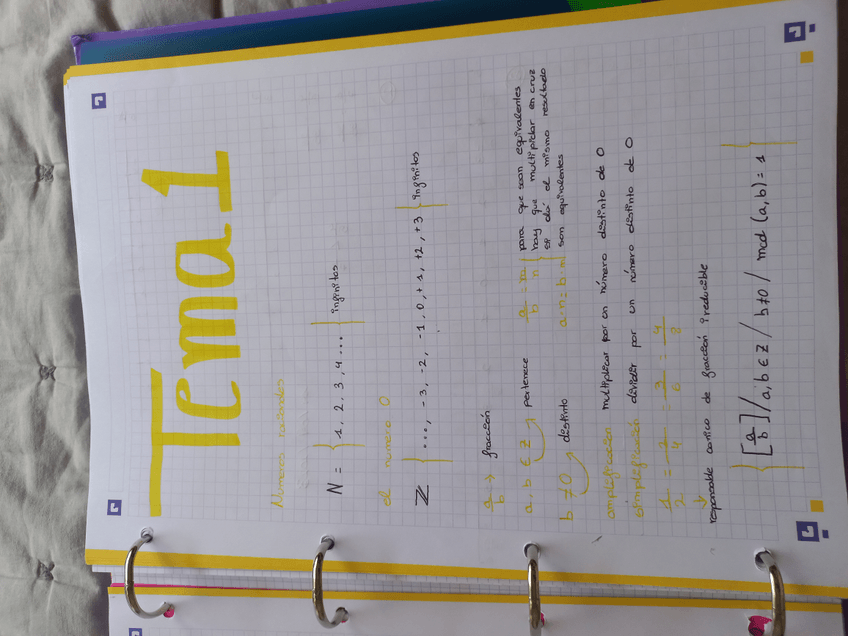 Tema 1
Números racionales
N = { 1, 2, 3, 4 ... } infinitos
el número 0
ℤ { ..., -3, -2, -1, 0, +1, +2, +3 } infinitos
a/b → fracción
a, b ∈ ℤ → pertenece
b ≠ 0 → distinto
a/b = m/n
a·n = b·m
{ para que sean equivalentes
hay que multiplicar en cruz
si dá el mismo resultado
son equivalentes
amplificación multiplicar por un número distinto de 0
simplificación dividir por un número distinto de 0
1/2 = 2/4 = 3/6 = 4/8
↓
responsable canico de fracción irreducible
{ [a/b] / a, b ∈ ℤ / b ≠ 0 / mcd (a, b) = 1 }